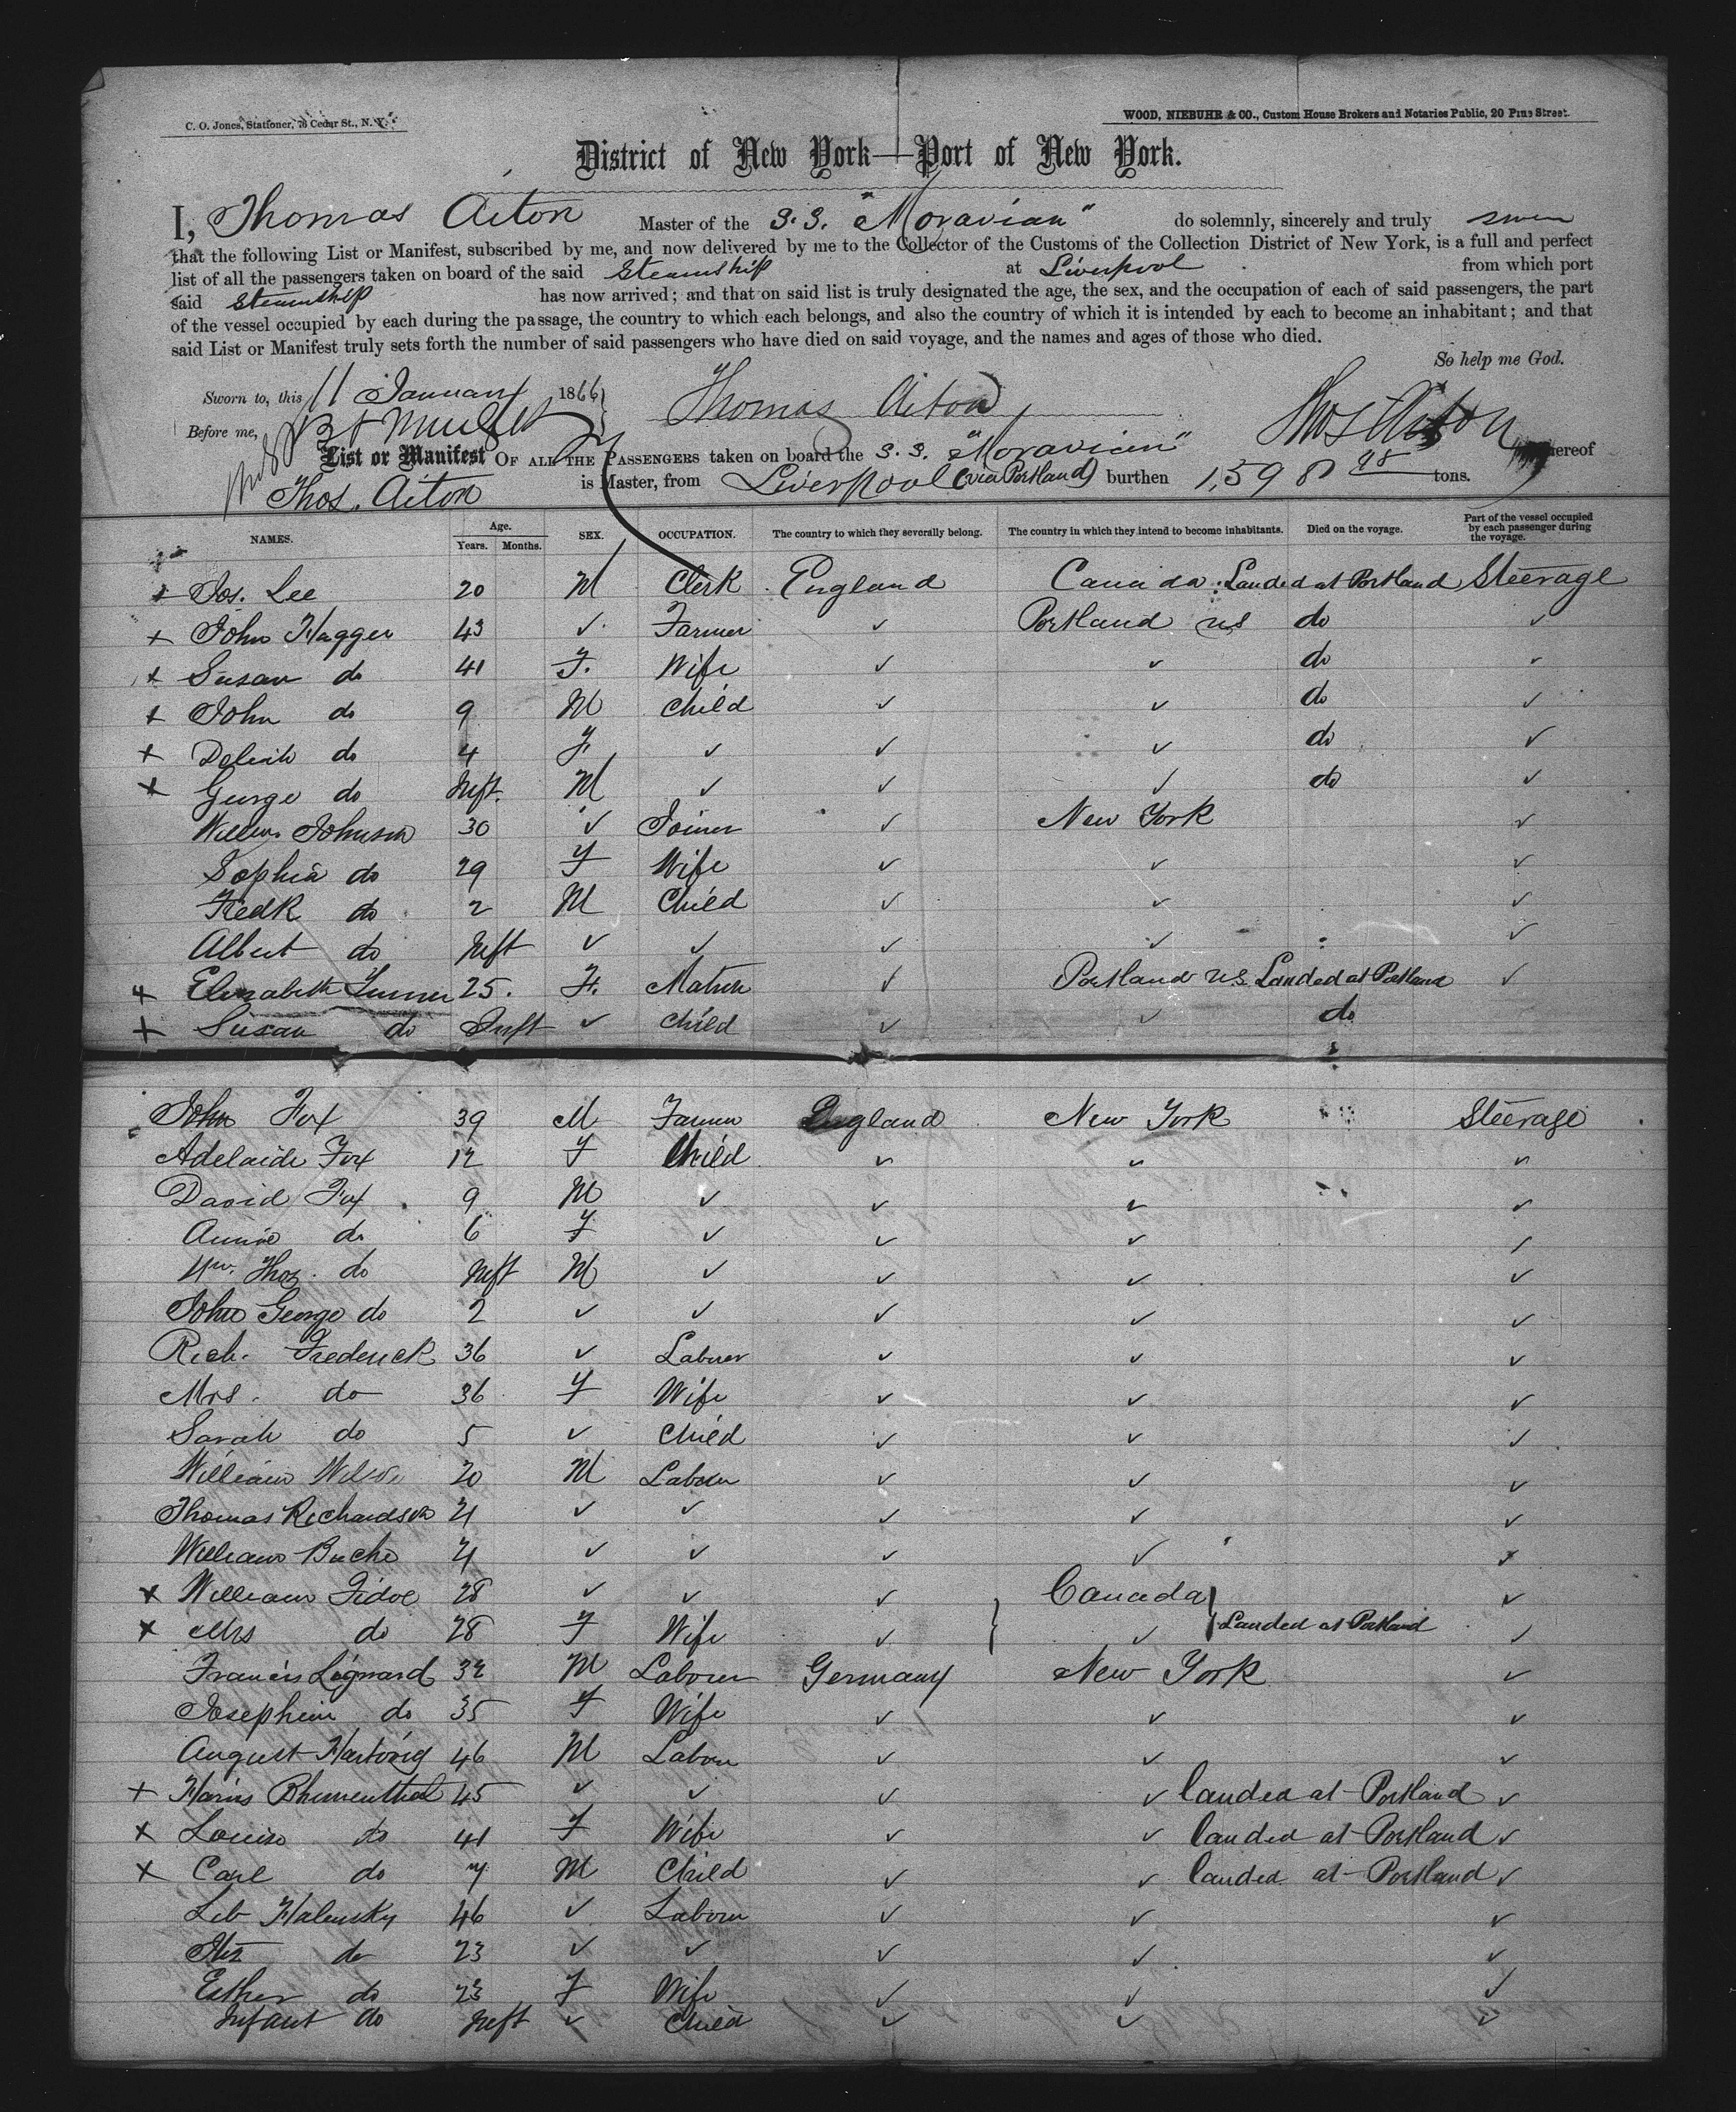 C. O. Jones, Stationer, 76 Cedar St., N. Y.
WOOD, NIEBUHR & CO., Custom House Brokers and Notaries Public, 20 Pine Street.
District of New York—Port of New York.
I, Thomas Aiton Master of the S.S. "Moravian" do solemnly, sincerely and truly swear
that the following List or Manifest, subscribed by me, and now delivered by me to the Collector of the Customs of the Collection District of New York, is a full and perfect
list of all the passengers taken on board of the said Steamship at Liverpool from which port
said Steamship has now arrived; and that on said list is truly designated the age, the sex, and the occupation of each of said passengers, the part
of the vessel occupied by each during the passage, the country to which each belongs, and also the country of which it is intended by each to become an inhabitant; and that
said List or Manifest truly sets forth the number of said passengers who have died on said voyage, and the names and ages of those who died.
So help me God.
Sworn to, this 11 January 1866 Thomas Aiton Thos Aiton
Before me,
List or Manifest OF ALL THE PASSENGERS taken on board the S.S. "Moravian" whereof
Thos. Aiton is Master, from Liverpool (via Portland) burthen 1,598 98 tons.
NAMES. Age. Years. Months. SEX. OCCUPATION. The country to which they severally belong. The country in which they intend to become inhabitants. Died on the voyage. Part of the vessel occupied by each passenger during the voyage.
+ Jos. Lee 20 M Clerk England Canada Landed at Portland Steerage
+ John Hagger 43 ✓ Farmer ✓ Portland US do ✓
+ Susan do 41 F. Wife ✓ ✓ do ✓
+ John do 9 M Child ✓ ✓ do ✓
+ do 4 F. ✓ ✓ ✓ do ✓
+ George do Inft. M ✓ ✓ ✓ do ✓
Willm. Johnson 30 ✓ Joiner ✓ New York ✓
Sophia do 29 F Wife ✓ ✓ ✓
Fredk do 2 M Child ✓ ✓ ✓
Albert do Inft ✓ ✓ ✓ ✓ ✓
+ Elizabeth Turner 25. F. Matron ✓ Portland US Landed at Portland ✓
+ Susan do Inft ✓ Child ✓ ✓ do
John Fox 39 M Farmer England New York Steerage
Adelaide Fox 12 F Child ✓ ✓ ✓
David Fox 9 M ✓ ✓ ✓ ✓
Annie do 6 F ✓ ✓ ✓ ✓
Wm. Thos. do Inft M ✓ ✓ ✓ ✓
John George do 2 ✓ ✓ ✓ ✓ ✓
Rich. Frederick 36 ✓ Laborer ✓ ✓ ✓
Mrs. do 36 F Wife ✓ ✓ ✓
Sarah do 5 ✓ Child ✓ ✓ ✓
William Wilson 20 M Labour ✓ ✓ ✓
Thomas Richardson 21 ✓ ✓ ✓ ✓ ✓
William 21 ✓ ✓ ✓ ✓ ✓
+ William Fidoe 28 ✓ ✓ ✓ Canada ✓
+ Mrs do 28 F Wife ✓ ✓ Landed at Portland ✓
Francis 32 M Labour Germany New York ✓
Josephine do 35 F Wife ✓ ✓ ✓
August Hartwig 46 M Labour ✓ ✓ ✓
+ Blumenthal 45 ✓ ✓ ✓ ✓ landed at Portland ✓
+ Louise do 41 F Wife ✓ ✓ landed at Portland ✓
+ Carl do 7 M Child ✓ ✓ landed at Portland ✓
Leb Halensky 46 ✓ Labour ✓ ✓ ✓
do 23 ✓ ✓ ✓ ✓ ✓
Esther do 23 F Wife ✓ ✓ ✓
Infant do Inft ✓ Child ✓ ✓ ✓